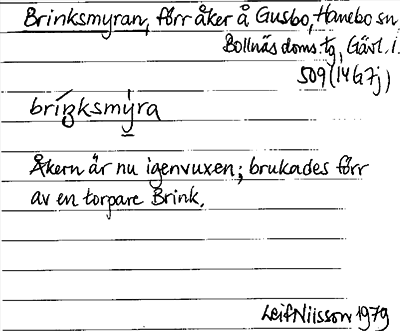 Brinksmyran, förr åker å Gusbo, Hanebo sn,
Bollnäs doms.tg, Gävl. l.
509 (14G7j)
brínksmýra
Åkern är nu igenvuxen; brukades förr
av en torpare Brink.
Leif Nilsson 1979